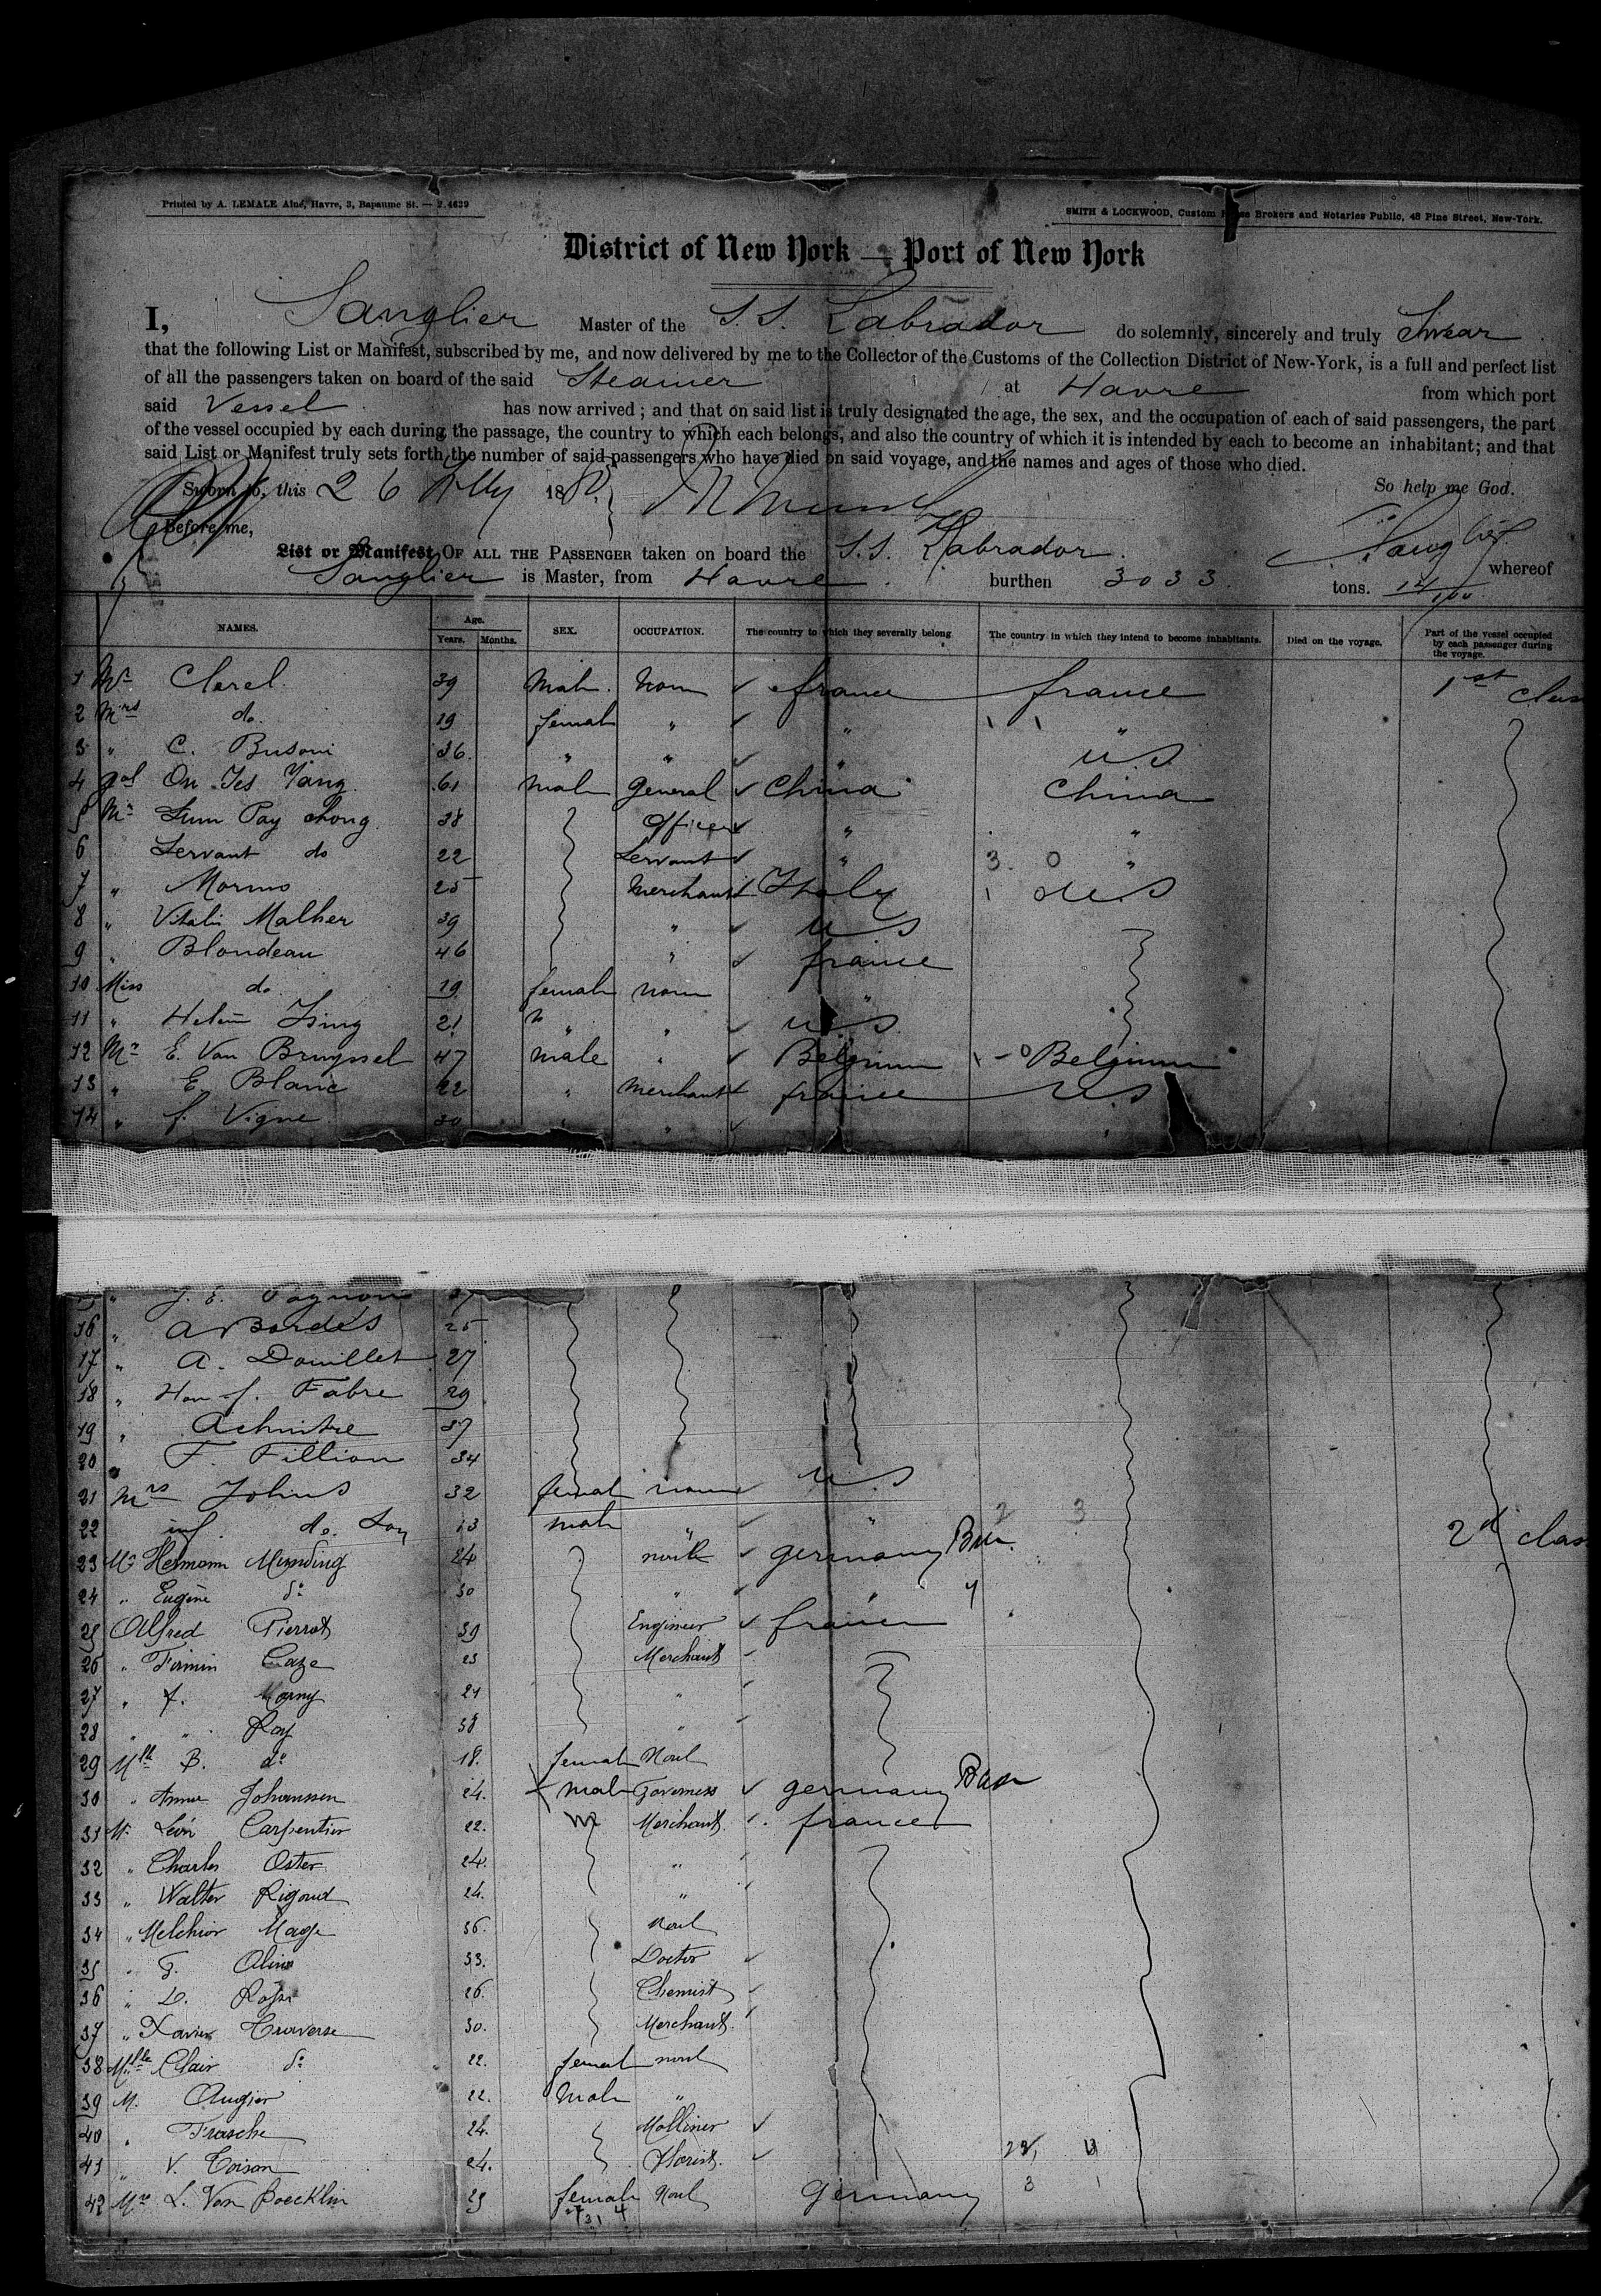 Printed by A. LEMALE Aîné, Havre, 3, Bapaume St. — P. 4629
SMITH & LOCKWOOD, Custom Brokers and Notaries Public, 48 Pine Street, New-York.
District of New York — Port of New York
I, Sanglier Master of the S.S. Labrador do solemnly, sincerely and truly Swear
that the following List or Manifest, subscribed by me, and now delivered by me to the Collector of the Customs of the Collection District of New-York, is a full and perfect list
of all the passengers taken on board of the said Steamer at Havre from which port
said Vessel has now arrived ; and that on said list is truly designated the age, the sex, and the occupation of each of said passengers, the part
of the vessel occupied by each during the passage, the country to which each belongs, and also the country of which it is intended by each to become an inhabitant; and that
said List or Manifest truly sets forth the number of said passengers who have died on said voyage, and the names and ages of those who died.
Sworn to, this 26 188 So help me God.
Before me,
Sanglier
List or Manifest OF ALL THE PASSENGER taken on board the S.S. Labrador whereof
Sanglier is Master, from Havre burthen 3033 tons.
NAMES. Age. Years. Months. SEX. OCCUPATION. The country to which they severally belong The country in which they intend to become inhabitants. Died on the voyage. Part of the vessel occupied by each passenger during the voyage.
1 Mr Clerel 39 Male None france france 1st class
2 Mrs do. 19 female " " "
3 " C. Busoni 36 " " " U.S
4 gal On Ies Yang 61 male General China China
5 Mr Lum Pay Chong 38 Officer " "
6 Servant do 22 Servant " 3. 0 "
7 " Morino 25 Merchant Italy U.S
8 " Vitalis Malher 39 " U S
9 " Blondeau 46 " france
10 Miss do. 19 female None "
11 " Helen Ising 21 " " U.S
12 Mr E. Van Bruyssel 47 male " Belgium Belgium
13 " E. Blanc 22 " Merchant france U.S
14 " f. Vigne 30 " "
" J. E. Pagnon 37
16 " A Bordes 25
17 " A. Douillet 27
18 " Hon f. Fabre 29
19 " Achintre 37
20 " F. Fillion 34
21 Mrs Johns 32 female none U.S
22 inf. do. Son 13 male " " 2 3
23 Mr Hermann Munding 24 none germany 2d class
24 " Eugène do 30 " "
25 Alfred Pierrot 39 Engineer france
26 " Firmin Caze 23 Merchant
27 " f. Morny 21 "
28 " " Roy 38 "
29 Mlle B. do 18. female None
30 " Anna Johannsen 24. male Governess germany
31 M. Léon Carpentier 22. M Merchant. france
32 " Charles Oster 24. "
33 " Walter Rigoud 24. "
34 " Melchior Mage 36. None
35 " G. Olive 33. Doctor
36 " D. 26. Chemist
37 " Xavier Traverse 30. Merchant.
38 Mlle Clair do 22. female none
39 M. Augier 22. male "
40 " Frasche 24.
41 " V. Toison 24. Florist.
42 Mme L. Von Boecklin 29 female None Germany 3 1